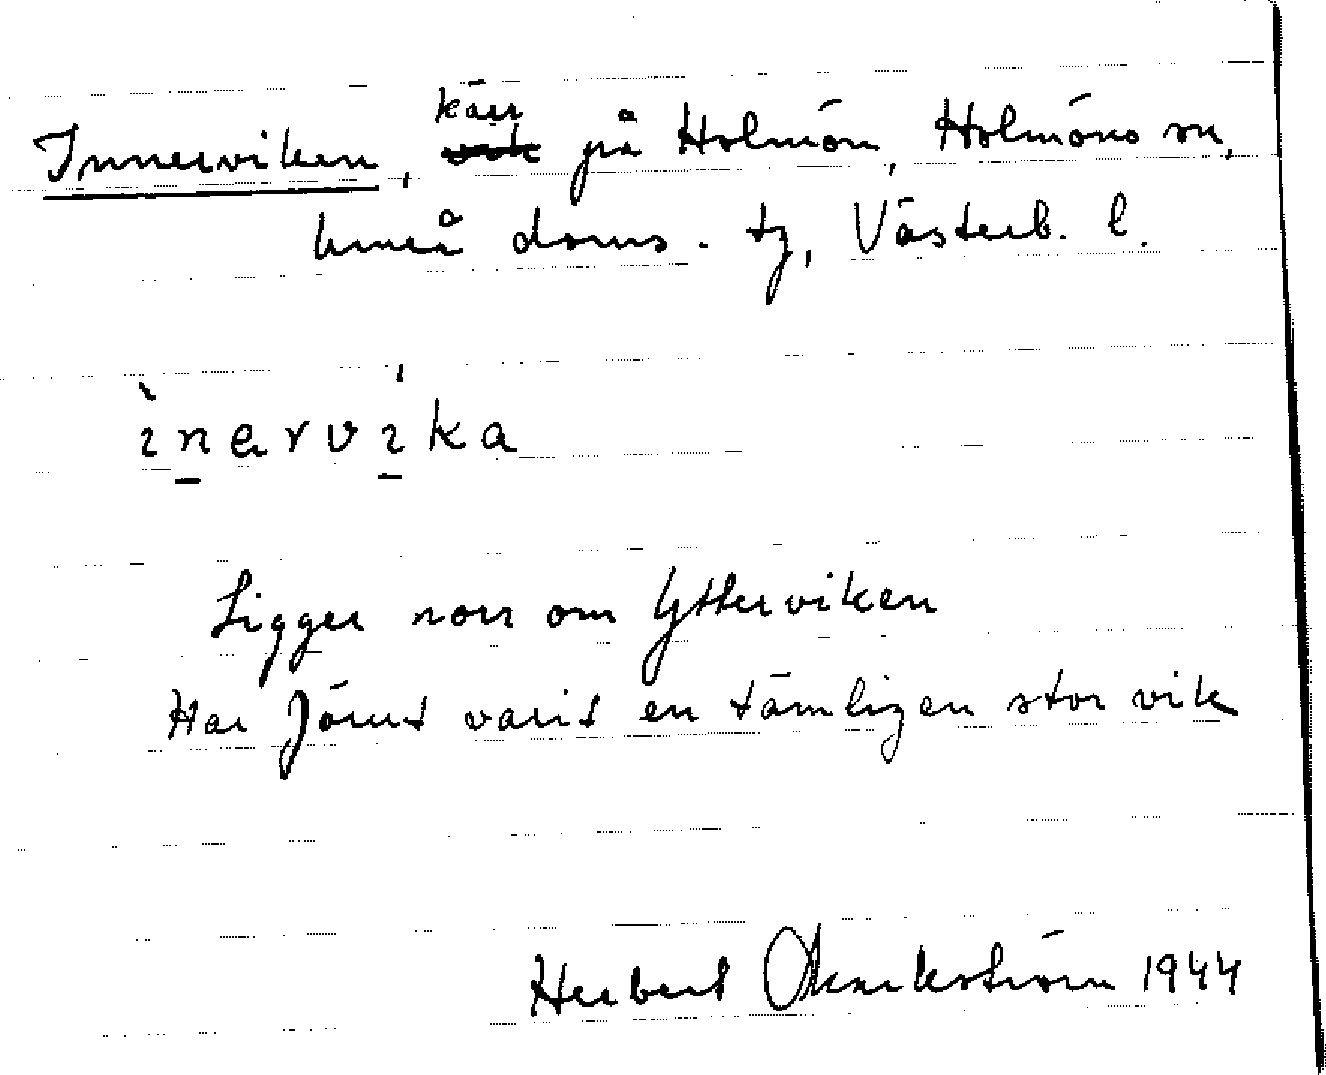 kärr
Innerviken, på Holmön, Holmöns sn,
Umeå doms. tg, Västerb. l.
ìnervíka
Ligger norr om Ytterviken
Har förut varit en tämligen stor vik
Herbert 1944